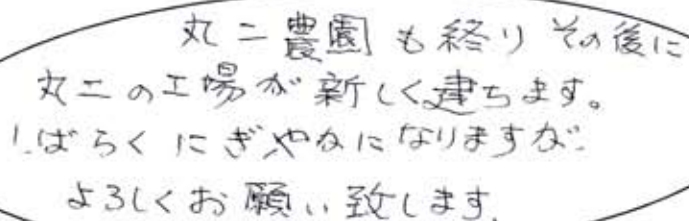 丸二農園も終り その後に
丸二の工場が新しく建ちます。
しばらくにぎやかになりますが
よろしくお願い致します。